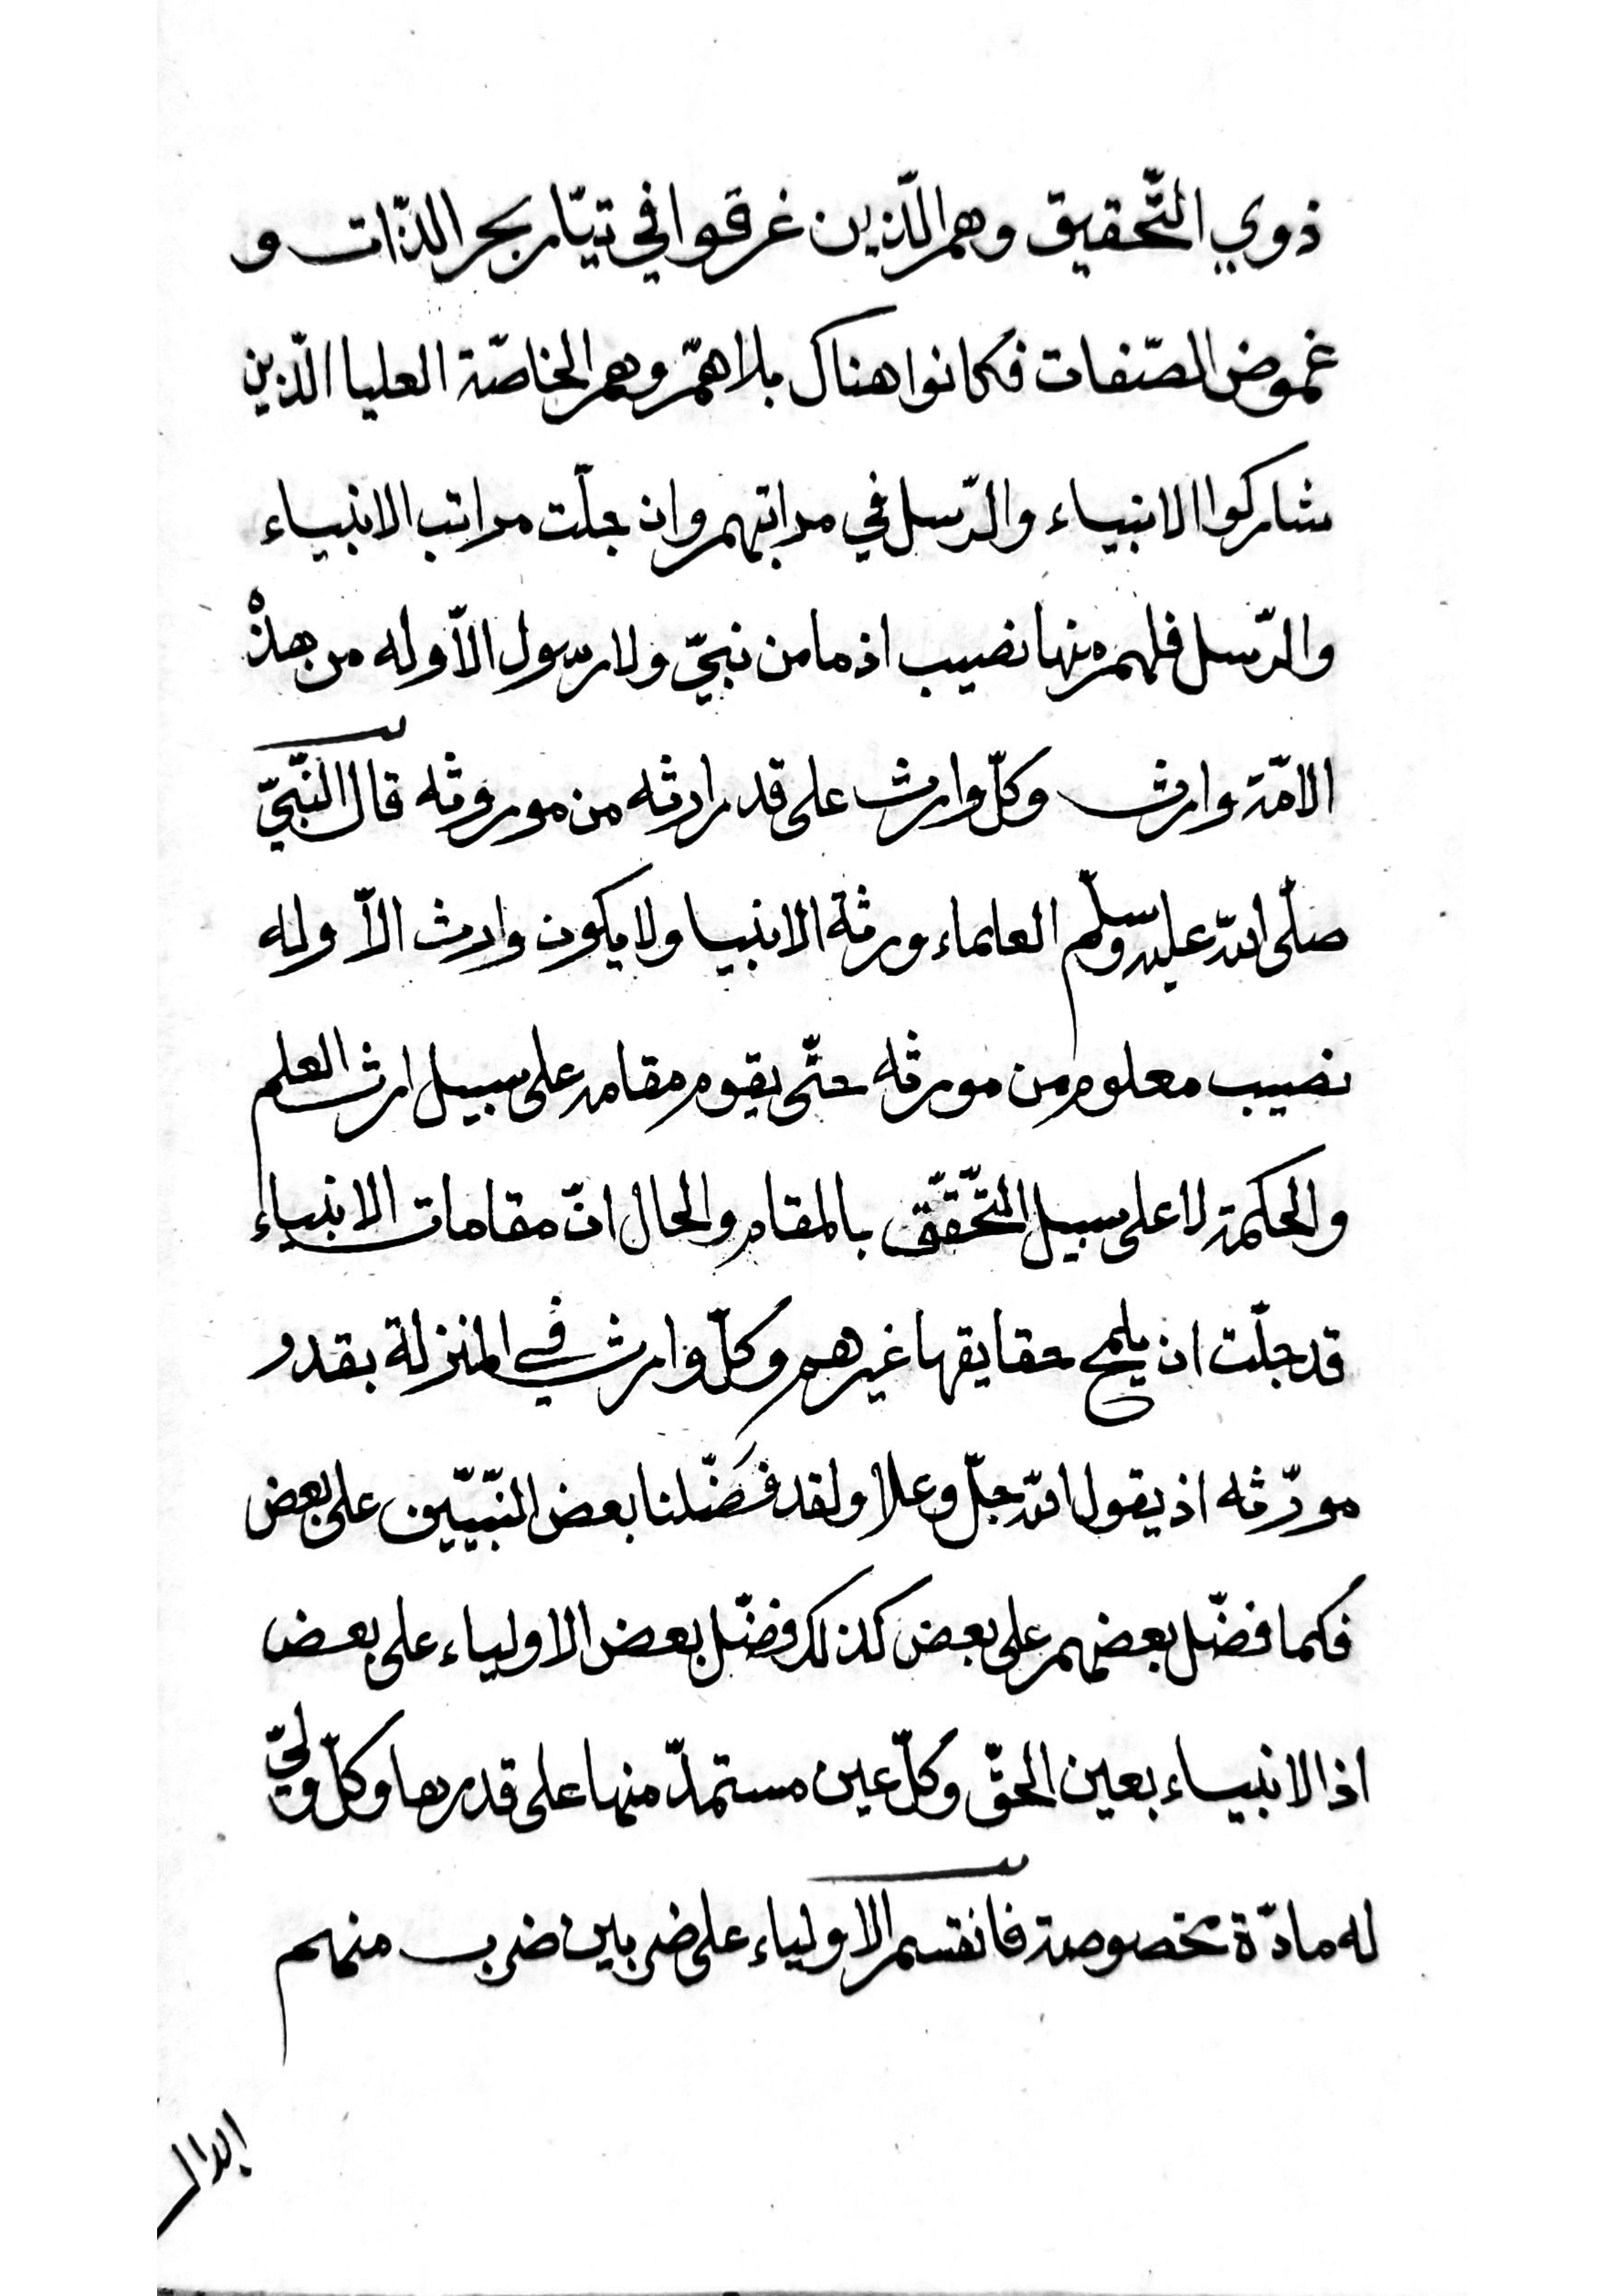 ذوي التّحقيق وهم الّذين غرقوا في تيّار بحر الذّات و
غموض الصّفات فكانوا هناك بلاهمّ وهم الخاصّة العليا الّذين
شاركوا الانبياء والرّسل في مراتبهم وان جلّت مراتب الانبياء
والرّسل فلهم منها نصيب اذ ما من نبيّ ولا رسول الاّ وله من هذه
الامّة وارث وكلّ وارث على قدر ارثه من موروثه قال النّبيّ
صلّى الله عليه وسلّم العلماء ورثة الانبيا ولا يكون وارث الاّ وله
نصيب معلوم من مورثه حتّى يقوم مقامه على سبيل ارث العلم
والحكمة لا على سبيل التّحقّق بالمقام والحال انّ مقامات الانبياء
قد جلّت ان يلمح حقايقها غيرهم وكلّ وارث في المنزلة بقدر
مورّثه اذ يقول الله جلّ وعلا ولقد فَضّلنا بعض النّبيّين على بعض
فكما فضّل بعضهم على بعض كذلك فضّل بعض الاولياء على بعض
اذ الانبياء بعين الحقّ وكلّ عين مستمدّ منها على قدرها وكلّ وليّ
له مادّة مخصوصة فانقسم الاولياء على ضربين ضرب منهم
ابدال